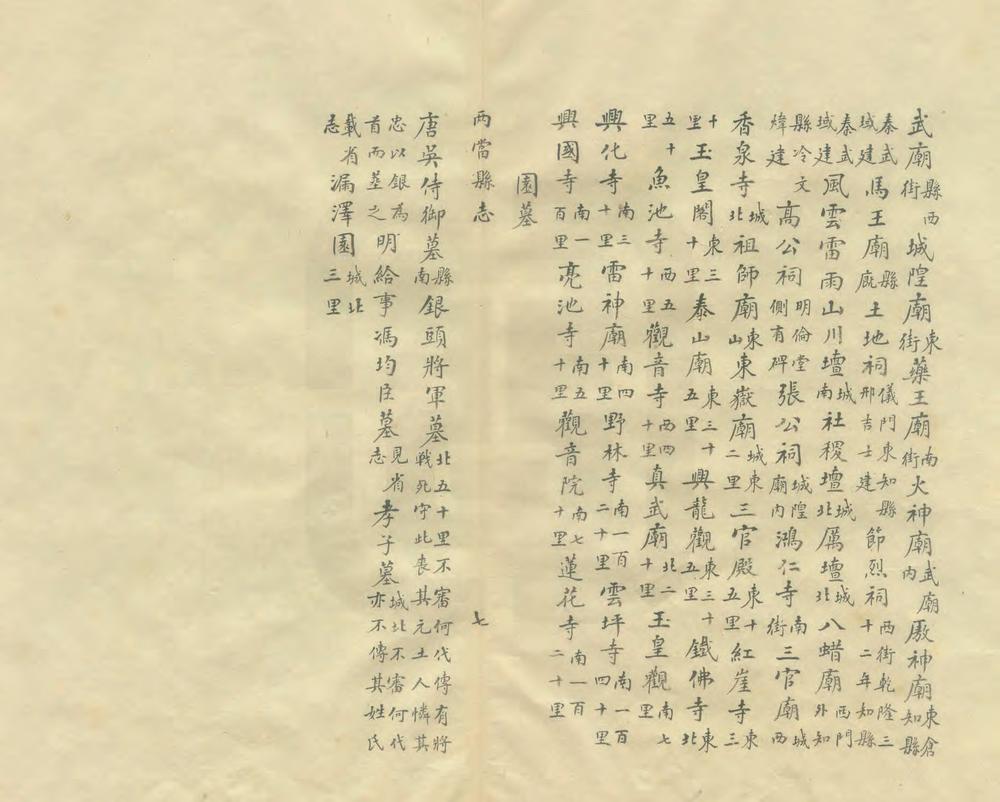 武廟縣西街城隍廟東街藥王廟南街火神廟武廟內厫神廟東倉知縣
秦武域建馬王廟縣廐土地祠儀門東知縣邢吉士建節烈祠西街乾隆三十二年知縣
秦武域建風雲雷雨山川壇城南社稷壇城北厲壇城北八蜡廟西門外知
縣冷文煒建高公祠明倫堂側有碑張公祠城隍廟內鴻仁寺南街三官廟城西
香泉寺城北祖師廟東山東嶽廟城東二里三官殿東十五里紅崖寺東三
十里玉皇閣東三十里泰山廟東三十五里興龍觀東三十五里鐵佛寺東北
五十里魚池寺西五十里觀音寺西四十里真武廟北二十里玉皇觀南七里
興化寺南三十里雷神廟南四十里野林寺南一百二十里雲坪寺南一百四十里
興國寺南一百里亮池寺南五十里觀音院南七十里蓮花寺南一百二十里
園墓
兩當縣志 七
唐吳侍御墓縣南銀頭將軍墓北五十里不審何代傳有將戰死守此喪其元土人憐其
忠以銀為首而塟之明給事馮均臣墓見省志孝子墓城北不審何代亦不傳其姓氏
載省志漏澤園城北三里